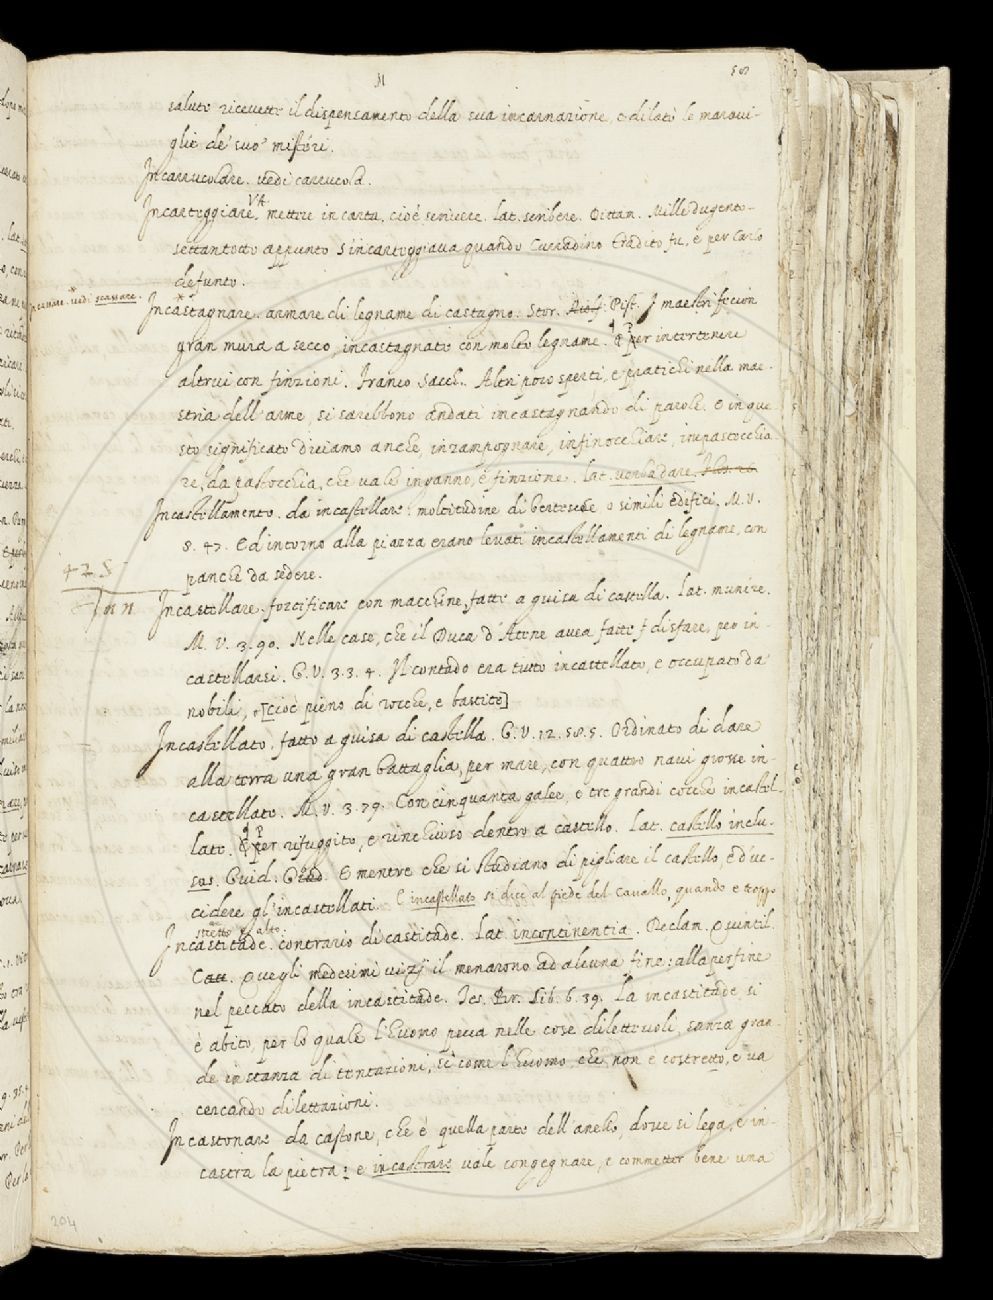 salute ricevette il dispensamento della sua incarnazione, e dilatò le maravi-
glie de' suo' misteri.
Incarrucolare. vedi carrucola.
Incarteggiare, V.A. mettere in carta, cioè scrivere. Lat. scribere. Dittam. Mille dugento
settantotto appunto S'incarteggiava quando Curradino Tradito fu, e per Carlo
defunto.
Incassare. vedi scassare.
Incastagnare. armare di legname di castagno. Stor. Pist. I maestri fecion
gran mura a secco, incastagnate con molto legname. ¶ Per intertenere
altrui con finzioni. Franco Sacch. Altri poco sperti, e pratichi nella mae-
stria dell'arme, si sarebbono andati incastagnando di parole. E in que-
sto significato diciamo anche, inzampognare, infinocchiare, impastocchia-
re, da pastocchia, che vale inganno, e finzione. Lat. verba dare.
Incastellamento. da incastellare: moltitudine di bertesche o simili edifici. M. V.
8. 47. E d'intorno alla piazza erano levati incastellamenti di legname, con
panche da sedere.
Incastellare. fortificare con macchine, fatte a guisa di castella. Lat. munire.
M. V. 3. 90. Nelle case, che il Duca d'Atene avea fatte disfare, per in-
castellarsi. G. V. 3. 3. 4. Il contado era tutto incastellato, e occupato da
nobili, [cioè pieno di rocche, e bastite]
Incastellato. fatto a guisa di castella. G. V. 12. 58. 5. Ordinato di dare
alla terra una gran battaglia, per mare, con quattro navi grosse in-
castellate. M. V. 3. 79. Con cinquanta galee, e tre grandi cocche incastel-
late. ¶ Per rifuggito, e rinchiuso dentro a castello. Lat. castello inclu-
sus. Guid. E mentre che si studiano di pigliare il castello, e d'uc-
cidere gl'incastellati. E incastellato si dice al piede del cavallo, quando è troppo
stretto alto.
Incastitade. contrario di castitade. Lat. incontinentia. Declam. Quintil.
Quegli medesimi vizj il menarono ad alcuna fine: alla perfine
nel peccato della incastitade. Tes. Br. Lib. 6. 39. La incastitade si
è abito, per lo quale l'Huomo pecca nelle cose dilettevoli, sanza gran-
de instanza di tentazioni, si come l'Huomo, che non è costretto, e va
cercando dilettazioni.
Incastonare da castone, che è quella parte dell'anello, dove si lega, e in-
castra la pietra: e incastrare vale congegnare, e commetter bene una
204